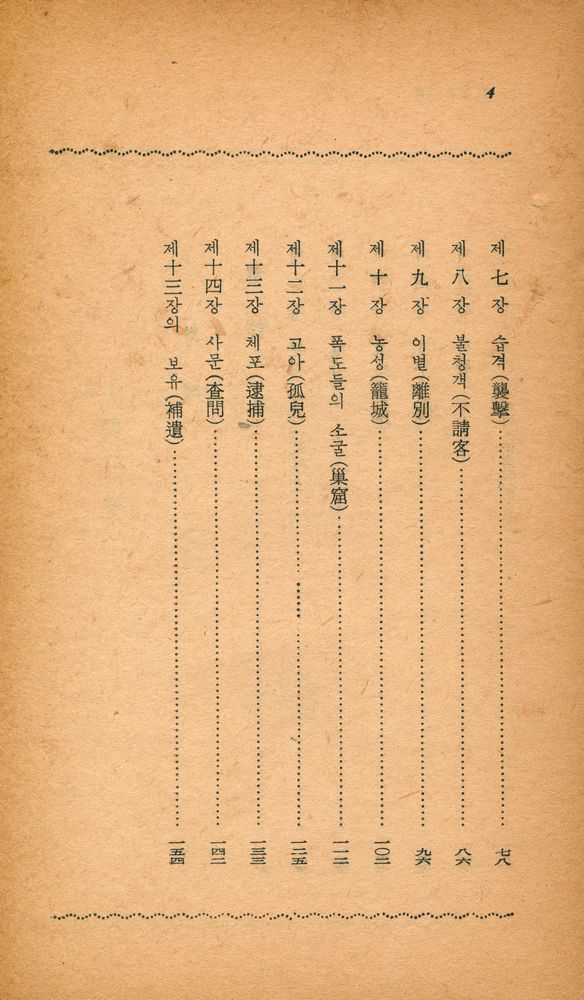 4
제 七 장 습격(襲擊)……七八
제 八 장 불청객(不請客)……八六
제 九 장 이별(離別)……九六
제 十 장 농성(籠城)……一〇二
제十一장 폭도들의 소굴(巢窟)……一一二
제十二장 고아(孤兒)……一二五
제十三장 체포(逮捕)……一三三
제十四장 사문(査問)……一四二
제十三장의 보유(補遺)……一五四